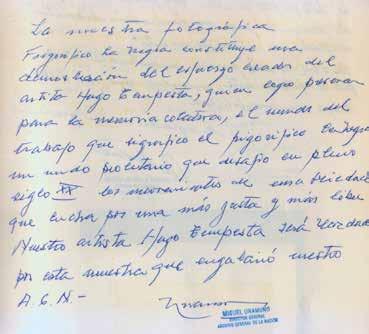 La muestra fotográfica
Frigorífico La Negra constituye una
demostración del esfuerzo creador del
artista Hugo Tempesta, quien logra preservar
para la memoria colectiva, el mundo del
trabajo que significó el frigorífico
un mundo proletario que desafió en pleno
siglo XX los
que lucha por una más justa y más libre
Nuestro artista Hugo Tempesta será
por esta muestra que engalanó nuestro
A.G.N-
MIGUEL UNAMUNO
DIRECTOR GENERAL
ARCHIVO GENERAL DE LA NACION